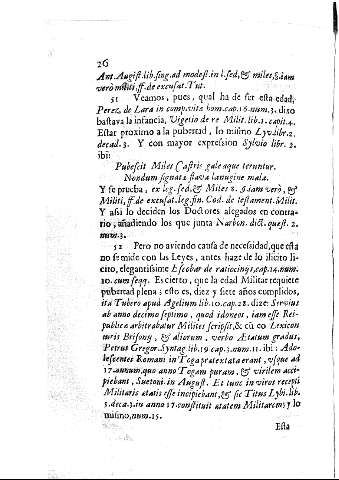 26
Ant. Augist. lib. sing. ad modest. in l. sed, & miles, §. iam
verò militi, ff. de excusat. Tut.
51 Veamos, pues, qual ha de ser esta edad,
Perez, de Lara in comp. vitæ hom. cap. 16. num. 3. dixo
bastava la infancia, Vigetio de re Milit. lib. 1. capit. 4.
Estar proximo a la pubertad, lo mismo Lyv. libr. 2.
decad. 3. Y con mayor expression Sylvio libr. 2.
ibi:
Pubescit Miles Castris galeaque teruntur.
Nondum signatæ flava lanugine malæ.
Y se prueba, ex leg. sed, & Miles 8. §. iam verò, &
Militi, ff. de excusat. leg. fin. Cod. de testament. Milit.
Y assi lo deciden los Doctores alegados en contra-
rio, añadiendo los que junta Narbon. dict. quæst. 2.
num. 3.
52 Pero no aviendo causa de necesidad, que esta
no se mide con las Leyes, antes haze de lo ilicito li-
cito, elegantissime Escobar de ratiocinijs, cap. 14. num.
10. cum seqq. Es cierto, que la edad Militar requiete
pubertad plena: esto es, diez y siete años cumplidos,
ita Tubero apud Agelium lib. 10. cap. 28. dize: Servius
ab anno decimo septimo, quod idoneos, iam esse Rei-
publicæ arbitrabatur Milites scripsit, & cū eo Lexicon
iuris Brisony, & aliorum, verbo Ætatum gradus,
Petrus Gregor. Syntag. lib. 19 cap. 3. num. 11. ibi: Ado-
lescentes Romani in Toga prætextata erant, vsque ad
17. annum, quo anno Togam puram, & virilem acci-
piebant, Sueton. in August. Et tunc in viros recepti
Militaris ætatis esse incipiebant, & sic Titus Lybi. lib.
3. deca. 3. in anno 17. constituit ætatem Militarem; y lo
mismo, num. 15.
Esta